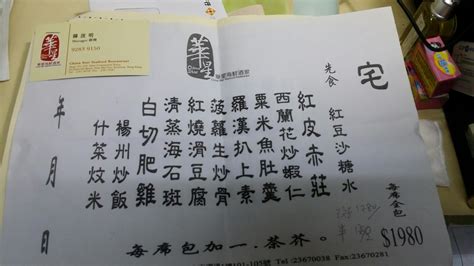 華星
華星海鮮酒家
陳俊明
Manager 經理
9283 9150
China Star Seafood Restaurant
宅
先食 紅豆沙糖水
紅皮赤莊
西蘭花炒蝦仁
粟米魚肚羹
羅漢扒上素
菠蘿生炒骨
紅燒滑豆腐
清蒸海石斑
白切肥雞
楊州炒飯
什菜炆米
年 月 日
每席全包
$1980
每席包加一．茶芥。
101-105號 Tel:23670038 Fax:23670281